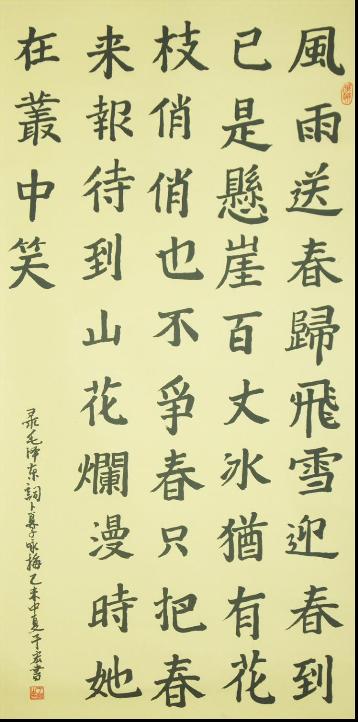 風雨送春歸飛雪迎春到
已是懸崖百丈冰猶有花
枝俏俏也不爭春只把春
来報待到山花爛漫時她
在叢中笑
录毛泽东詞卜算子咏梅乙未中夏于宏書